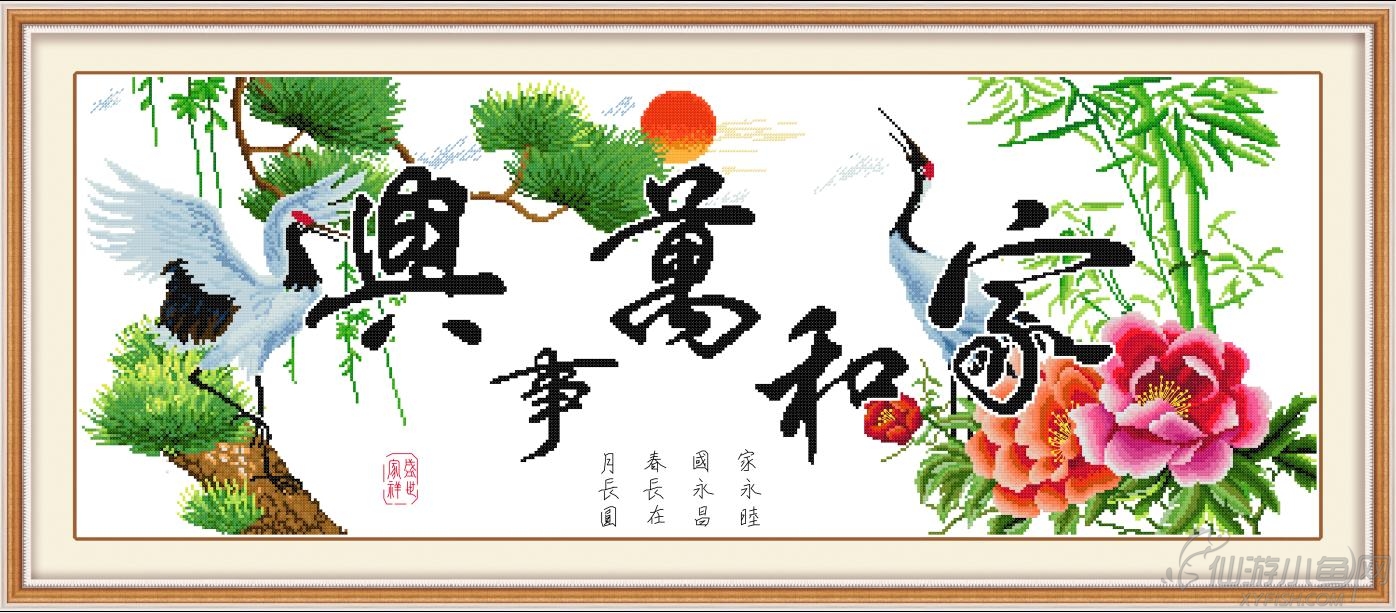 家和萬事興
家永睦
國永昌
春長在
月長圓
盛世
家祥
仙游小鱼网
XYFISH.COM